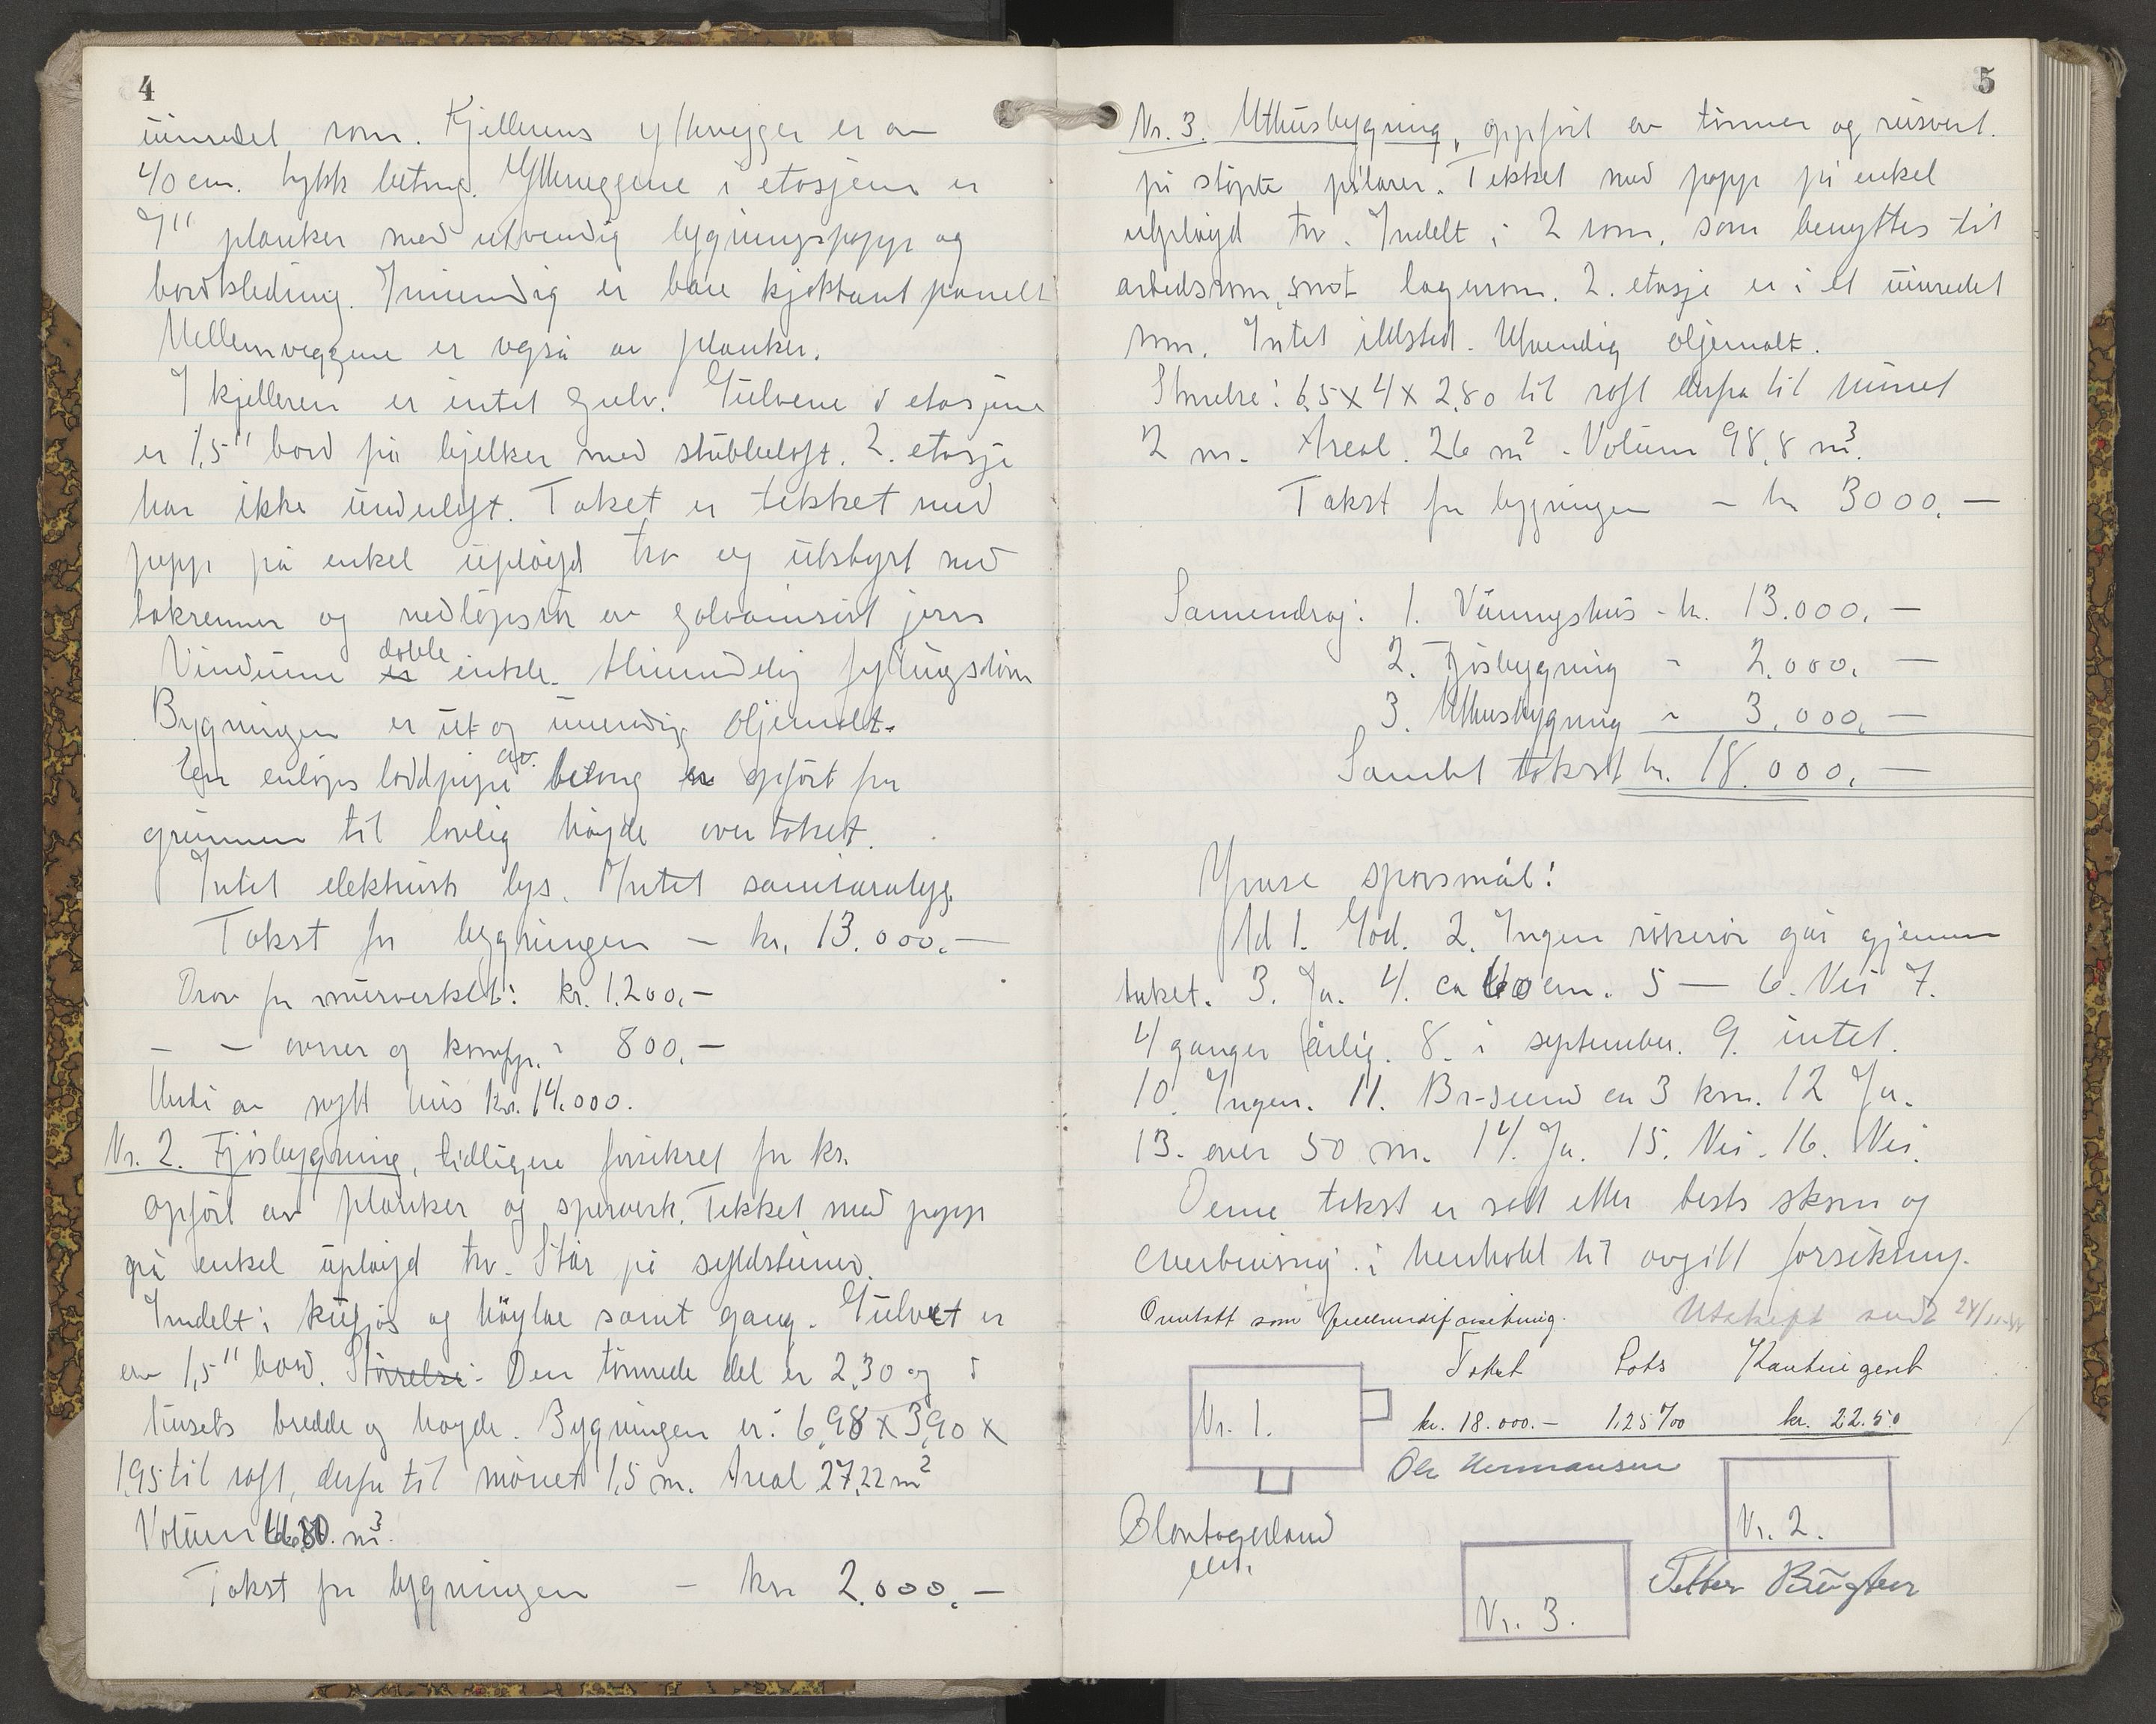 4
uinredet rom. Kjellerens yttervegger er av
40 cm. tykk betong. Ytterveggene i etasjen er
3" planker med utvendig bygningspapp og
bordkledning. Innvendig er bare kjøkkent panelt
Mellemveggene er også av planker.
I kjelleren er intet gulv. Gulvene i etasjene
er 1,5" bord på bjelker med stubbeloft. 2. etasje
har ikke underloft. Taket er tekket med
papp på enkel upløyd tro og utstyrt med
takrenner og nedløpsrør av galvanisert jern
doble
Vinduene er enkle. Alminnelig fyllingsdører
Bygningen er ut og innvendig oljemalt.
av
En enløps loddpipe betong er opført fra
grunnen til lovlig høyde over taket.
Intet elektrisk lys. Intet sanitæranlegg.
Takst for bygningen - kr. 13.000.-
Derav for murverket: kr. 1.200.-
- - ovner og komfyr. " 800.-
Verdi av nytt hus kr. 14.000.
Nr. 2. Fjøsbygning, tidligere forsikret for kr.
Opført av planker og sperverk. Tekket med papp
på enkel upløyd tro. Står på syldstener.
Inndelt i kufjøs og høylae samt gang. Gulvet er
av 1,5" bord. Størrelse: Den tømrede del er 2,30 og i
husets bredde og høyde. Bygningen er: 6,98 x 3,90 x
1,95 til raft, derfra til mønet 1,5 m. Areal 27,22 m²
Volum m³.
Takst for bygningen - kr 2.000.-
5
Nr. 3. Uthusbygning, oppført av tømmer og reisverk.
på støpte pilarer. Tekket med papp på enkel
upløyd tro. Inndelt i 2 rom, som benyttes til
arbedsrom, samt lagerrom. 2. etasje er i et uinredet
rom. Intet ildsted. Utvendig oljemalt.
Størrelse: 6,5 x 4 x 2,80 til raft derfra til mønet
2 m. Areal. 26 m² - Volum 98,8 m³.
Takst for bygningen - kr 3000.-
Samendrag: 1. Våningshus - kr. 13.000.-
2. Fjøsbygning " 2.000.-
3. Uthusbygning " 3.000.-
Samlet takst kr. 18.000.-
spørsmål:
Ad 1. God. 2. Ingen røkerør går gjennem
taket. 3. Ja. 4. ca 60 cm. 5 - 6. Nei 7.
4 ganger årlig. 8. i september. 9. intet.
10. Ingen. 11. Br-sund ca 3 km. 12 Ja.
13. over 50 m. 14. Ja. 15. Nei. 16. Nei.
Denne takst er satt etter beste skjøn og
overbevisning i henhold til avgitt forsikring.
Omtatt som fullverdiforsikring. Utskrift sendt
Takst Sats Kontingent
kr. 18.000.- 1,25 ‰ kr. 22.50
Nr. 1.
Ole Hermansen
Nr. 2.
Nr. 3.